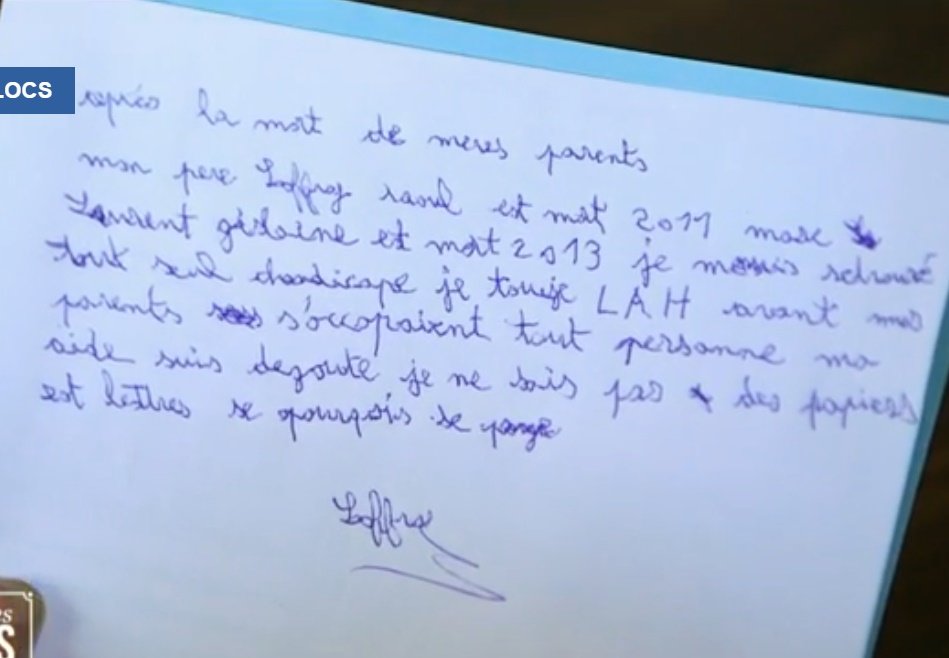 LOCS
après la mort de meres parents
mon pere Loffroy raoul est mort 2011 mase
Laurent gislaine et mort 2013 je me suis retrouvé
tout seul chandicape je touche LAH avant mes
parents s'occopaient tout personne ma
aide suis degouté je ne sais pas des papiers
est lettres se pourqois se
Loffro